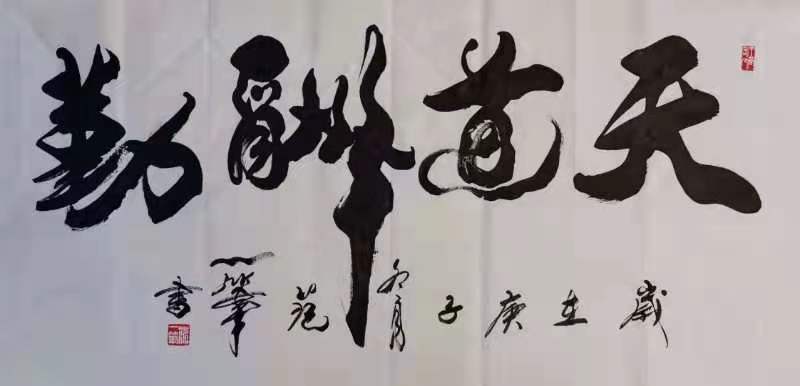 天道酬勤
歲在庚子冬月范一筆書